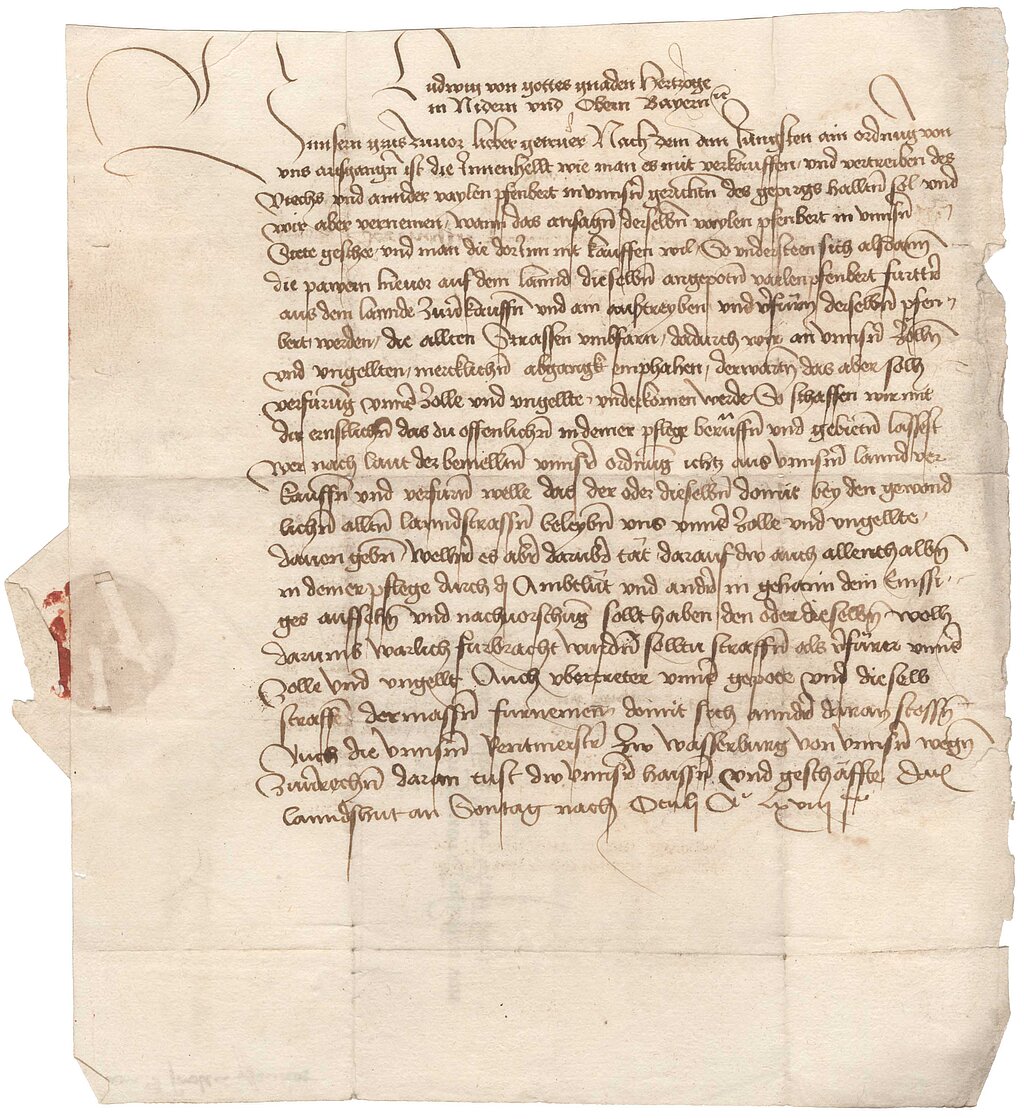 Ludwig von gottes gnaden Hertzoge
in Nidern und Obern Bayern etc
Unnsern grus zuvor lieber getrewer Nach dem am Jungsten ain ordnung von
uns ausgangen ist die Innenhellt wie man es mit verkauffen und vertreiben des
Viechs und annder vaylen pfenbert in unnsern gerichten des gepirgs hallten sol und
wir aber vernemen, wann das ansagen derselben vaylen pfenbert in unnsern
Stete geschee und man die dorInn nit kauffen wil, So understeen sich alsdann
die pawern hievor auf dem lannd dieselben angepoten vaylen pfenbert furter
aus dem lannde zuverkauffen und am austreyben und verfuren derselben pfen-
bert werden, die allten Strassen umbfarn, dadurch wir an unnsern Zolln
und ungellten, mercklichen abgangk emphahen, derwarten das aber solh
verfurung unnser Zolle und ungellte underkomen werde So schaffen wir mit
dir ernstlichen das du offenlichen in deiner pfleg beruffen und gebieten lassest
wer nach laut der bemellten unnser ordnung ichtz aus unnserm lannd ver-
kauffen und verfuren welle das der oder dieselben domit bey den gewond
lichen allten lanndstrassen beleyben uns unnser Zolle und ungellte
davon geben Welher es aber daruber tat darauf du auch allenthalben
in deiner pflege durch dein Ambtleut und annder in gehaim dein Emssi-
ges aufsehen und nachvorschung sollt haben, den oder dieselben wolh
darumb warlich furbracht wurden solltu straffen als verfurer unnser
Zolle und ungellt Auch ubertreter unnser gepote und dieselb
straffe dermassen furnemen domit sich annder daran stossen
Auch die unnserm Rentmeister zu wasserburg von unnsern wegen
zuverrechen daran tust du unnser haissen und geschäffte Dat
lanndshut an Sontag nach Oculi Ao lxviii